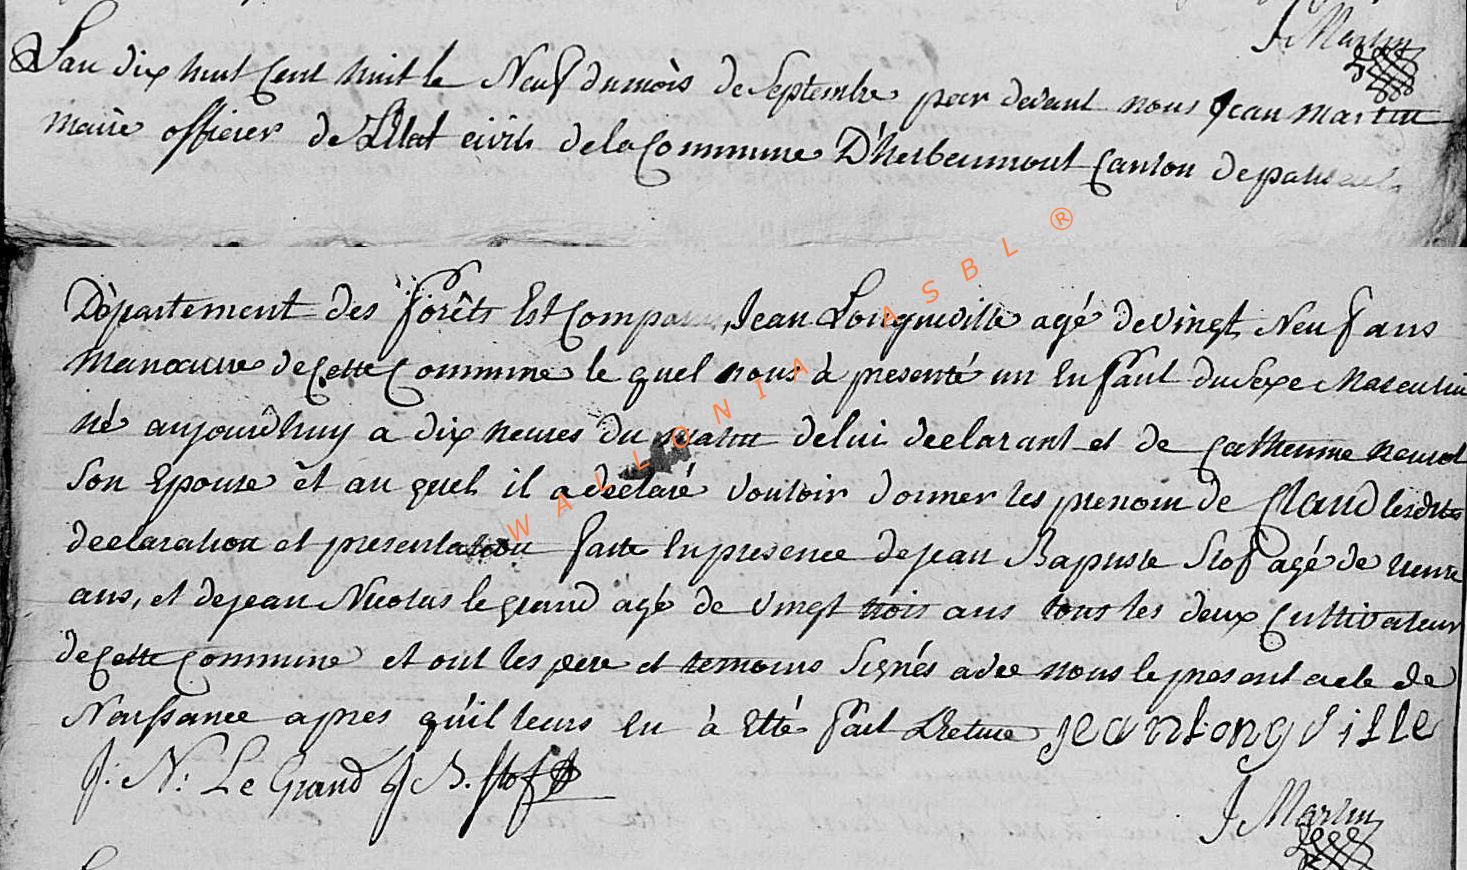 J. Martin
L'an dix huit Cent huit le Neuf du mois de Septembre par devant nous Jean Martin
Maire officier de L'Etat civile de la Commune D'herbeumont Canton de
Département des forêts Est Jean Longueville agé de vingt Neuf ans
Manoeuvre de Cette Commune le quel nous à presenté un Enfant du Sexe Masculin
né aujourdhuy a dix heures du matin de lui declarant et de Catherine
Son Epouse êt au quel il a declaré vouloir donner les prenom de Claud lesdites
declaration et presentation faitte En presence de jean Baptiste Stof agé de trente
ans, et de jean Nicolas le grand agé de vingt trois ans tous les deux Cultivateur
de Cette Commune et ont les pere et temoins Signés avec nous le present acte de
Naissance apres qu'il leurs En à Etté fait Lecture jean longville
J: N: Le Grand J B. Stof
J Martin
WALLONIA ASBL ®